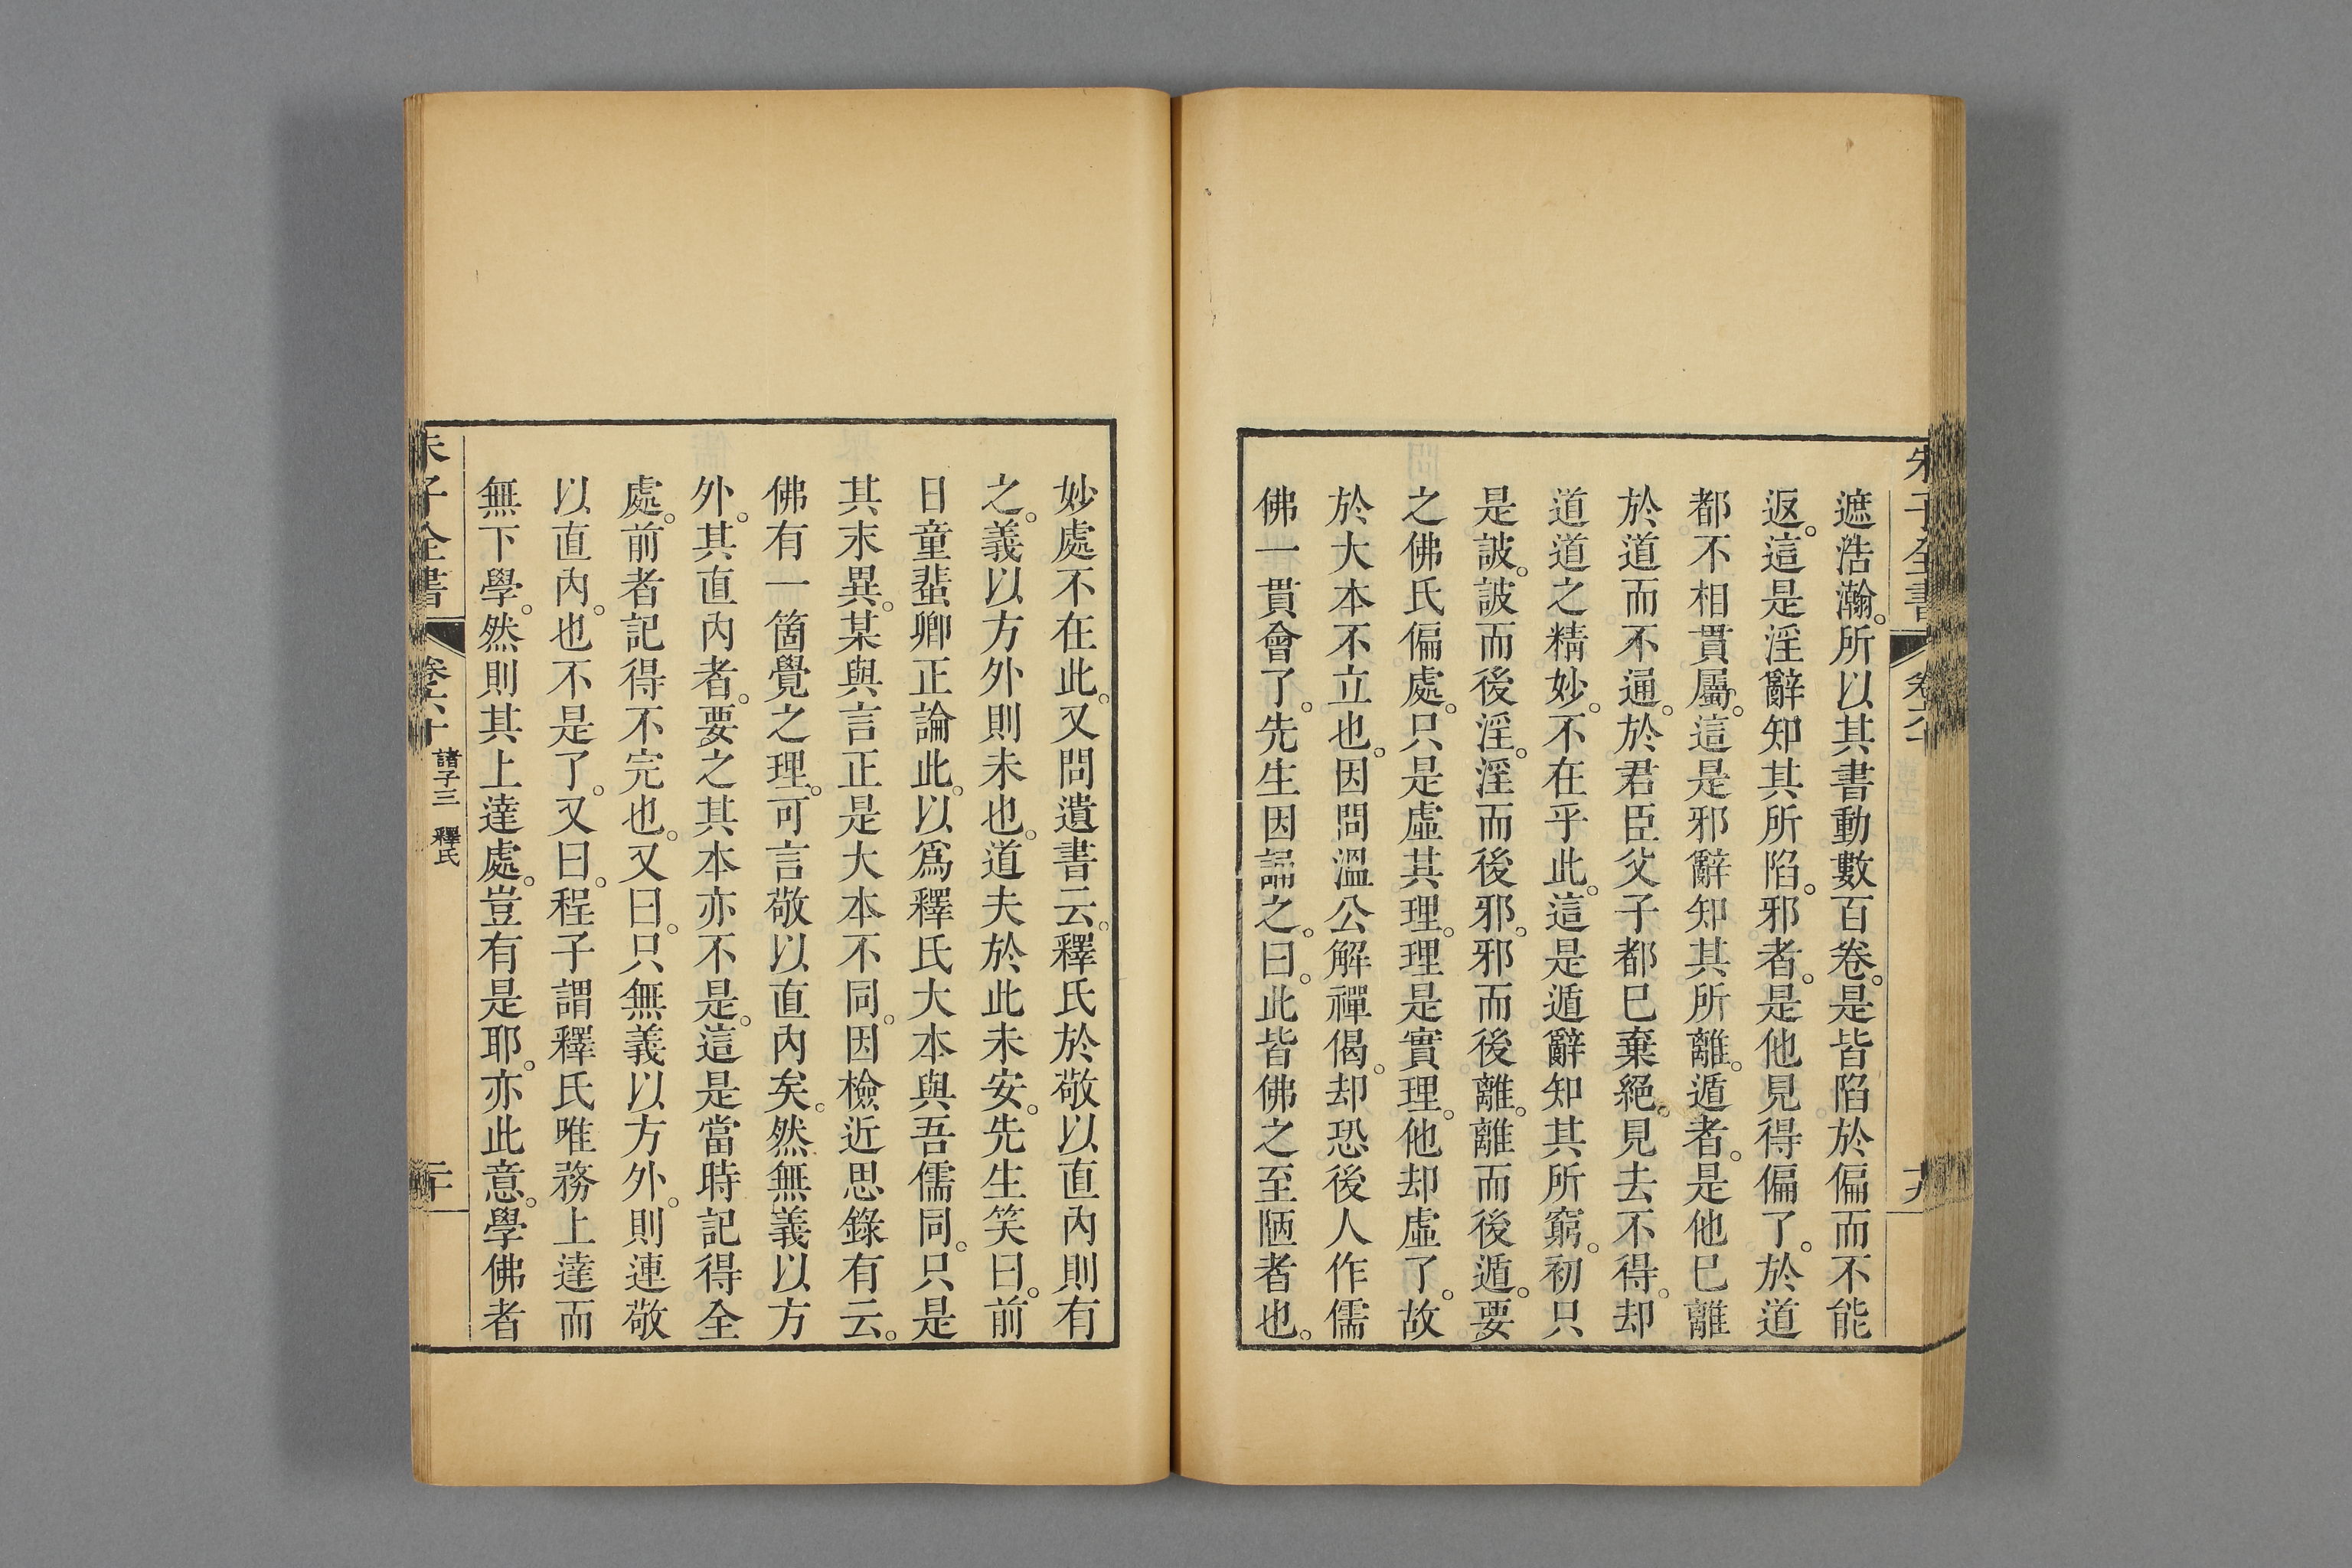 遮浩瀚。所以其書動數百卷。是皆陷於偏而不能
返。這是淫辭知其所陷。邪者。是他見得偏了。於道
都不相貫屬。這是邪辭知其所離。遁者。是他巳離
於道而不通。於君臣父子都巳棄絕。見去不得。却
道道之精妙。不在乎此。這是遁辭知其所窮。初只
是詖。詖而後淫。淫而後邪。邪而後離。離而後遁。要
之佛氏偏處。只是虛其理。理是實理。他却虛了。故
於大本不立也。因問溫公解禪偈。却恐後人作儒
佛一貫會了。先生因誦之。曰。此皆佛之至陋者也。
妙處不在此。又問遺書云。釋氏於敬以直內則有
之。義以方外則未也。道夫於此未安。先生笑曰。前
日童蜚卿正論此。以爲釋氏大本與吾儒同。只是
其末異。某與言正是大本不同。因檢近思錄有云。
佛有一箇覺之理。可言敬以直內矣。然無義以方
外。其直內者。要之其本亦不是。這是當時記得全
處。前者記得不完也。又曰。只無義以方外。則連敬
以直內。也不是了。又曰。程子謂釋氏唯務上達而
無下學。然則其上達處。豈有是耶。亦此意。學佛者
朱子全書 卷六十 諸子三 釋氏